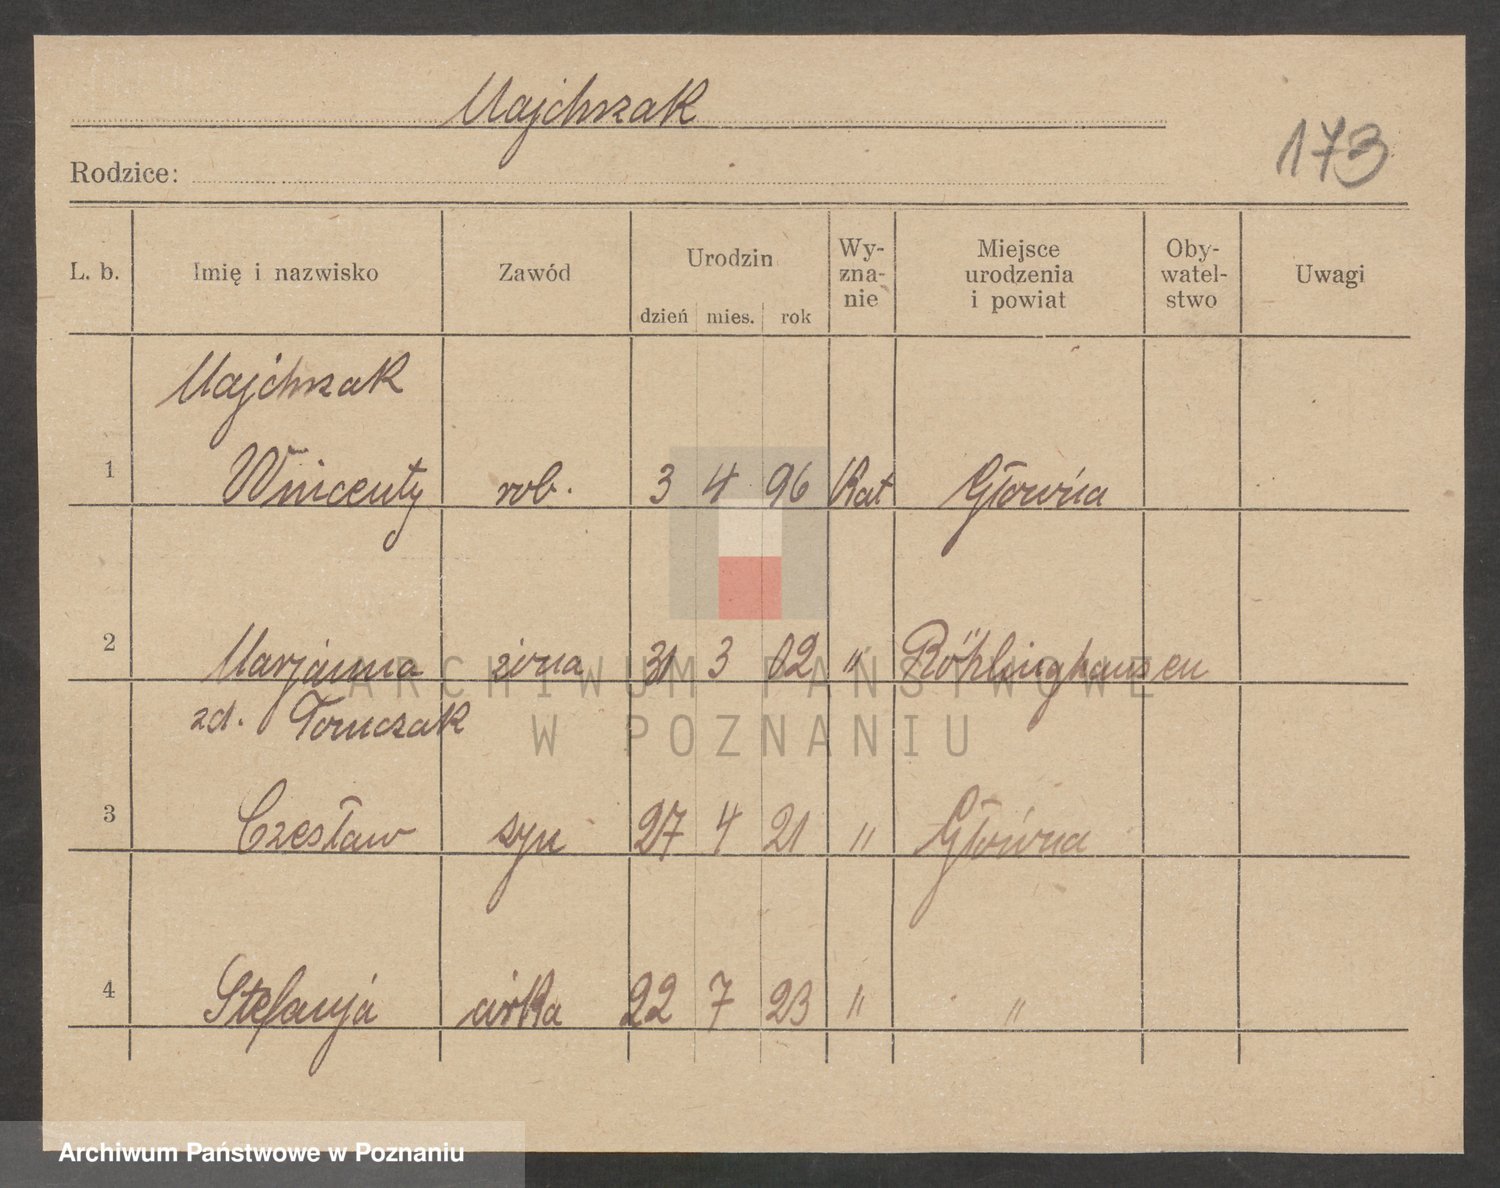 Majchrzak
173
Rodzice:
L. b. Imię i nazwisko Zawód Urodzin dzień mies. rok Wy-zna-nie Miejsce urodzenia i powiat Oby-watel-stwo Uwagi
Majchrzak
1 Wincenty rob. 3 4 96 Kat Główna
2 Marjanna żona 31 3 02 " Röhlinghausen
zd. Tomczak
3 Czesław syn 27 4 21 " Główna
4 Stefanja córka 22 7 23 " "
ARCHIWUM PAŃSTWOWE
W POZNANIU
Archiwum Państwowe w Poznaniu